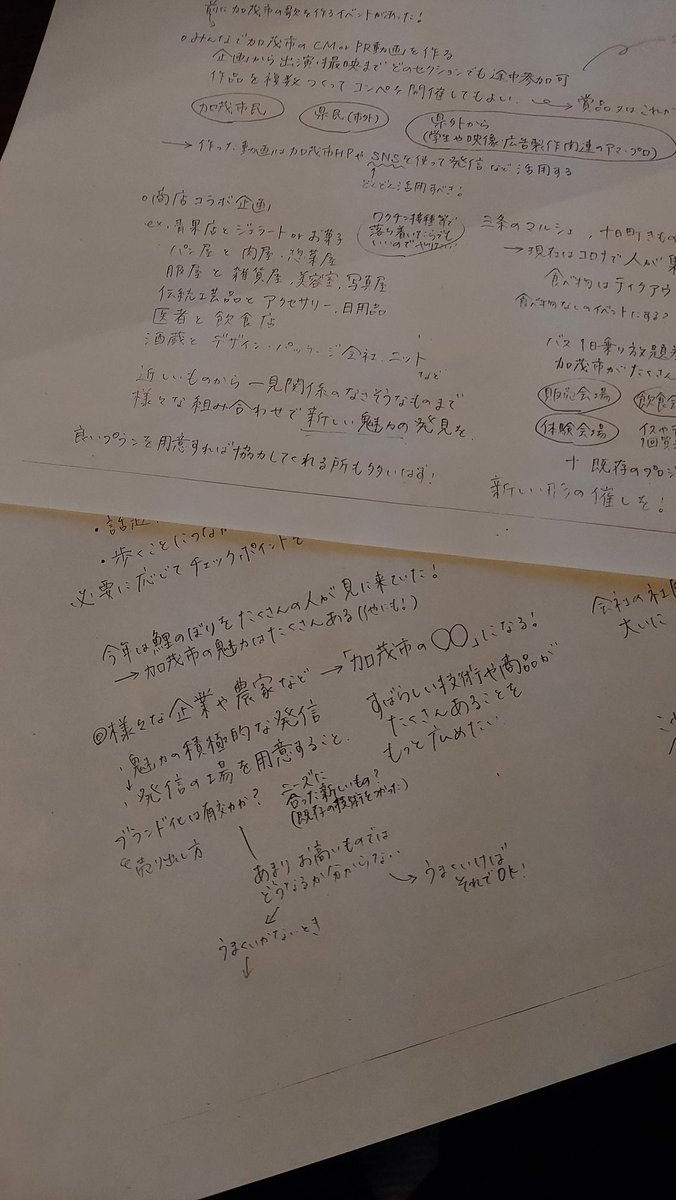 前に加茂市の歌を作るイベントがあった!
○みんなで加茂市のCM or PR動画を作る
企画から出演・撮映までどのセクションでも途中参加可
作品を複数つくってコンペを開催してもよい。
→賞品
加茂市民
県民(市外)
県外から
(学生や映像・広告製作関連のアマ・プロ)
→作った動画は加茂市HPやSNSを使って発信など活用する
↑
どんどん活用すべき!
○商店コラボ企画
ex. 青果店とジェラート or お菓子
パン屋と肉屋・惣菜屋
服屋と雑貨屋、美容室、写真屋
伝統工芸品とアクセサリー、日用品
医者と飲食店
酒蔵とデザイン・パッケージ会社、ニット
など
近しいものから一見関係のなさそうなものまで
様々な組み合わせで新しい魅力の発見を
良いプランを用意すれば協力してくれる所も多いはず!
ワクチン接種等で
落り着いたらでも
いいのでやりたい
三条のマルシェ、十日町きもの
→現在はコロナで人が集
食べ物はテイクアウ
食べ物なしのイベントにする?
バス1日乗り放題
加茂市がたくさん
販売会場
飲食会
体験会場
+既存のプロジ
新しい形の催しを!
・歩くことに
必要に応じてチェックポイントを
今年は鯉のぼりをたくさんの人が見に来ていた!
→加茂市の魅力はたくさんある(他にも!)
◎様々な企業や農家など→「加茂市の○○」になる!
魅力の積極的な発信
↓
発信の場を用意すること。
すばらしい技術や商品が
たくさんあることを
もっと広めたい
ブランド化は有効か?
売り出し方
ニーズに
合った新しいもの?
(既存の技術をつかった)
あまりお高いものでは
どうなるか分からない..
→うまくいけば
それでOK!
うまくいかないとき
↓
会社の社
大いに